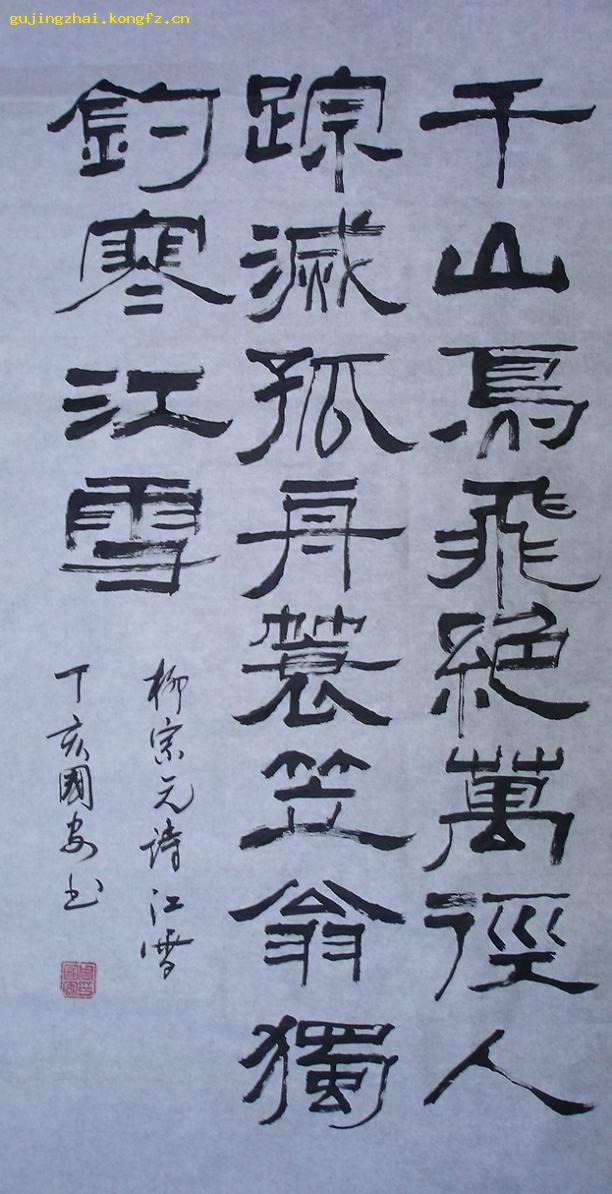 gujingzhai.kongfz.cn
千山鳥飛絶萬徑人
踪滅孤舟蓑笠翁獨
釣寒江雪
柳宗元诗江雪
丁亥國安书